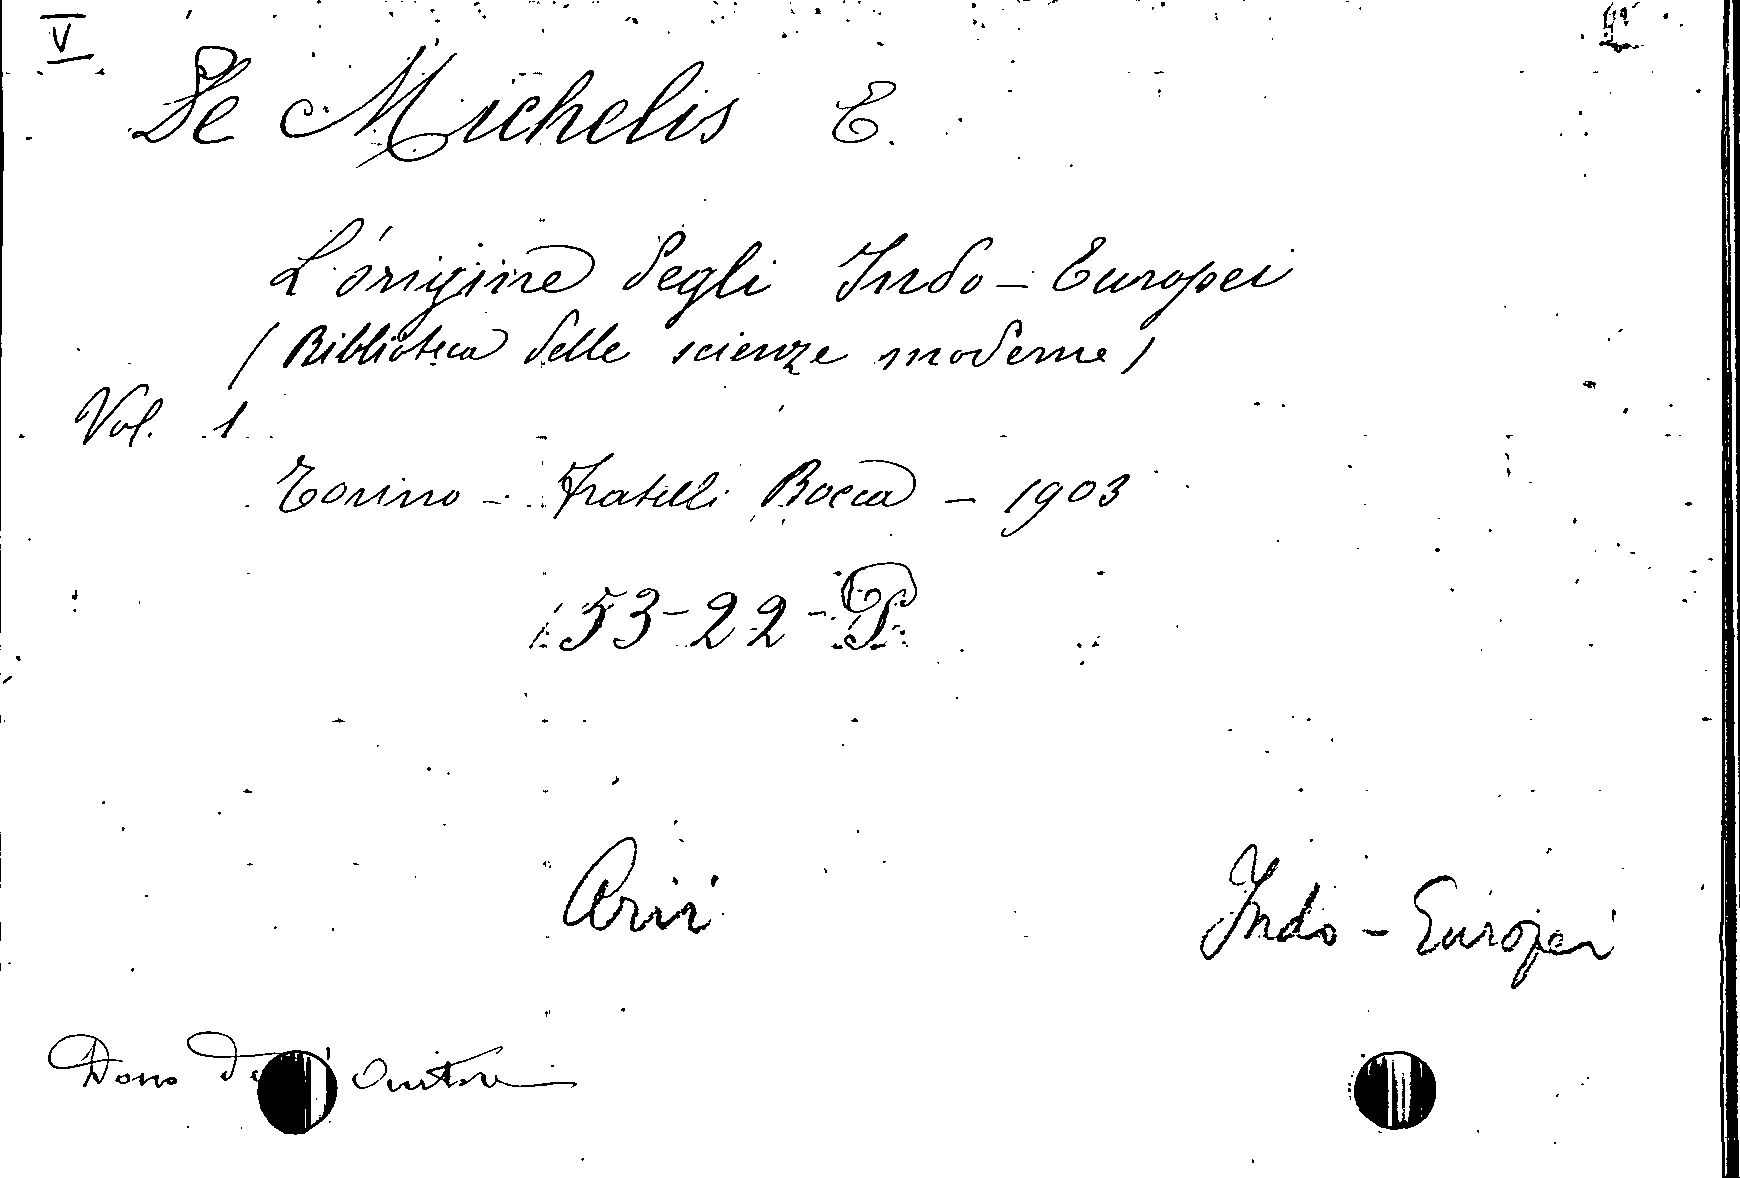 V
De Michelis E.
L'origine degli Indo-Europei
(Biblioteca delle scienze moderne)
Vol. 1
Torino - Fratelli Bocca - 1903
153-22-P
Arii Indo-Europei
Dono